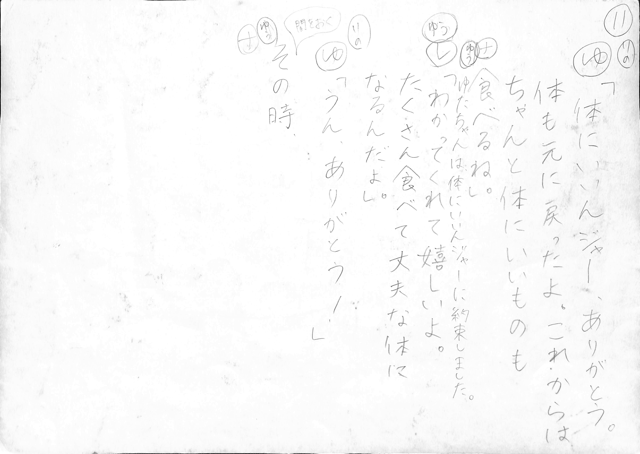 11
いの
ゆ
「体にいいんジャー、ありがとう。
体も元に戻ったよ。これからは
ちゃんと体にいいものも
食べるね」
ナ
ゆう
ゆたちゃんは体にいいんジャーに約束しました。
ゆう
し
「わかってくれて嬉しいよ。
たくさん食べて丈夫な体に
なるんだよ」
いの
ゆ
「うん、ありがとう!」
間をおく
ゆう
ナ
その時、